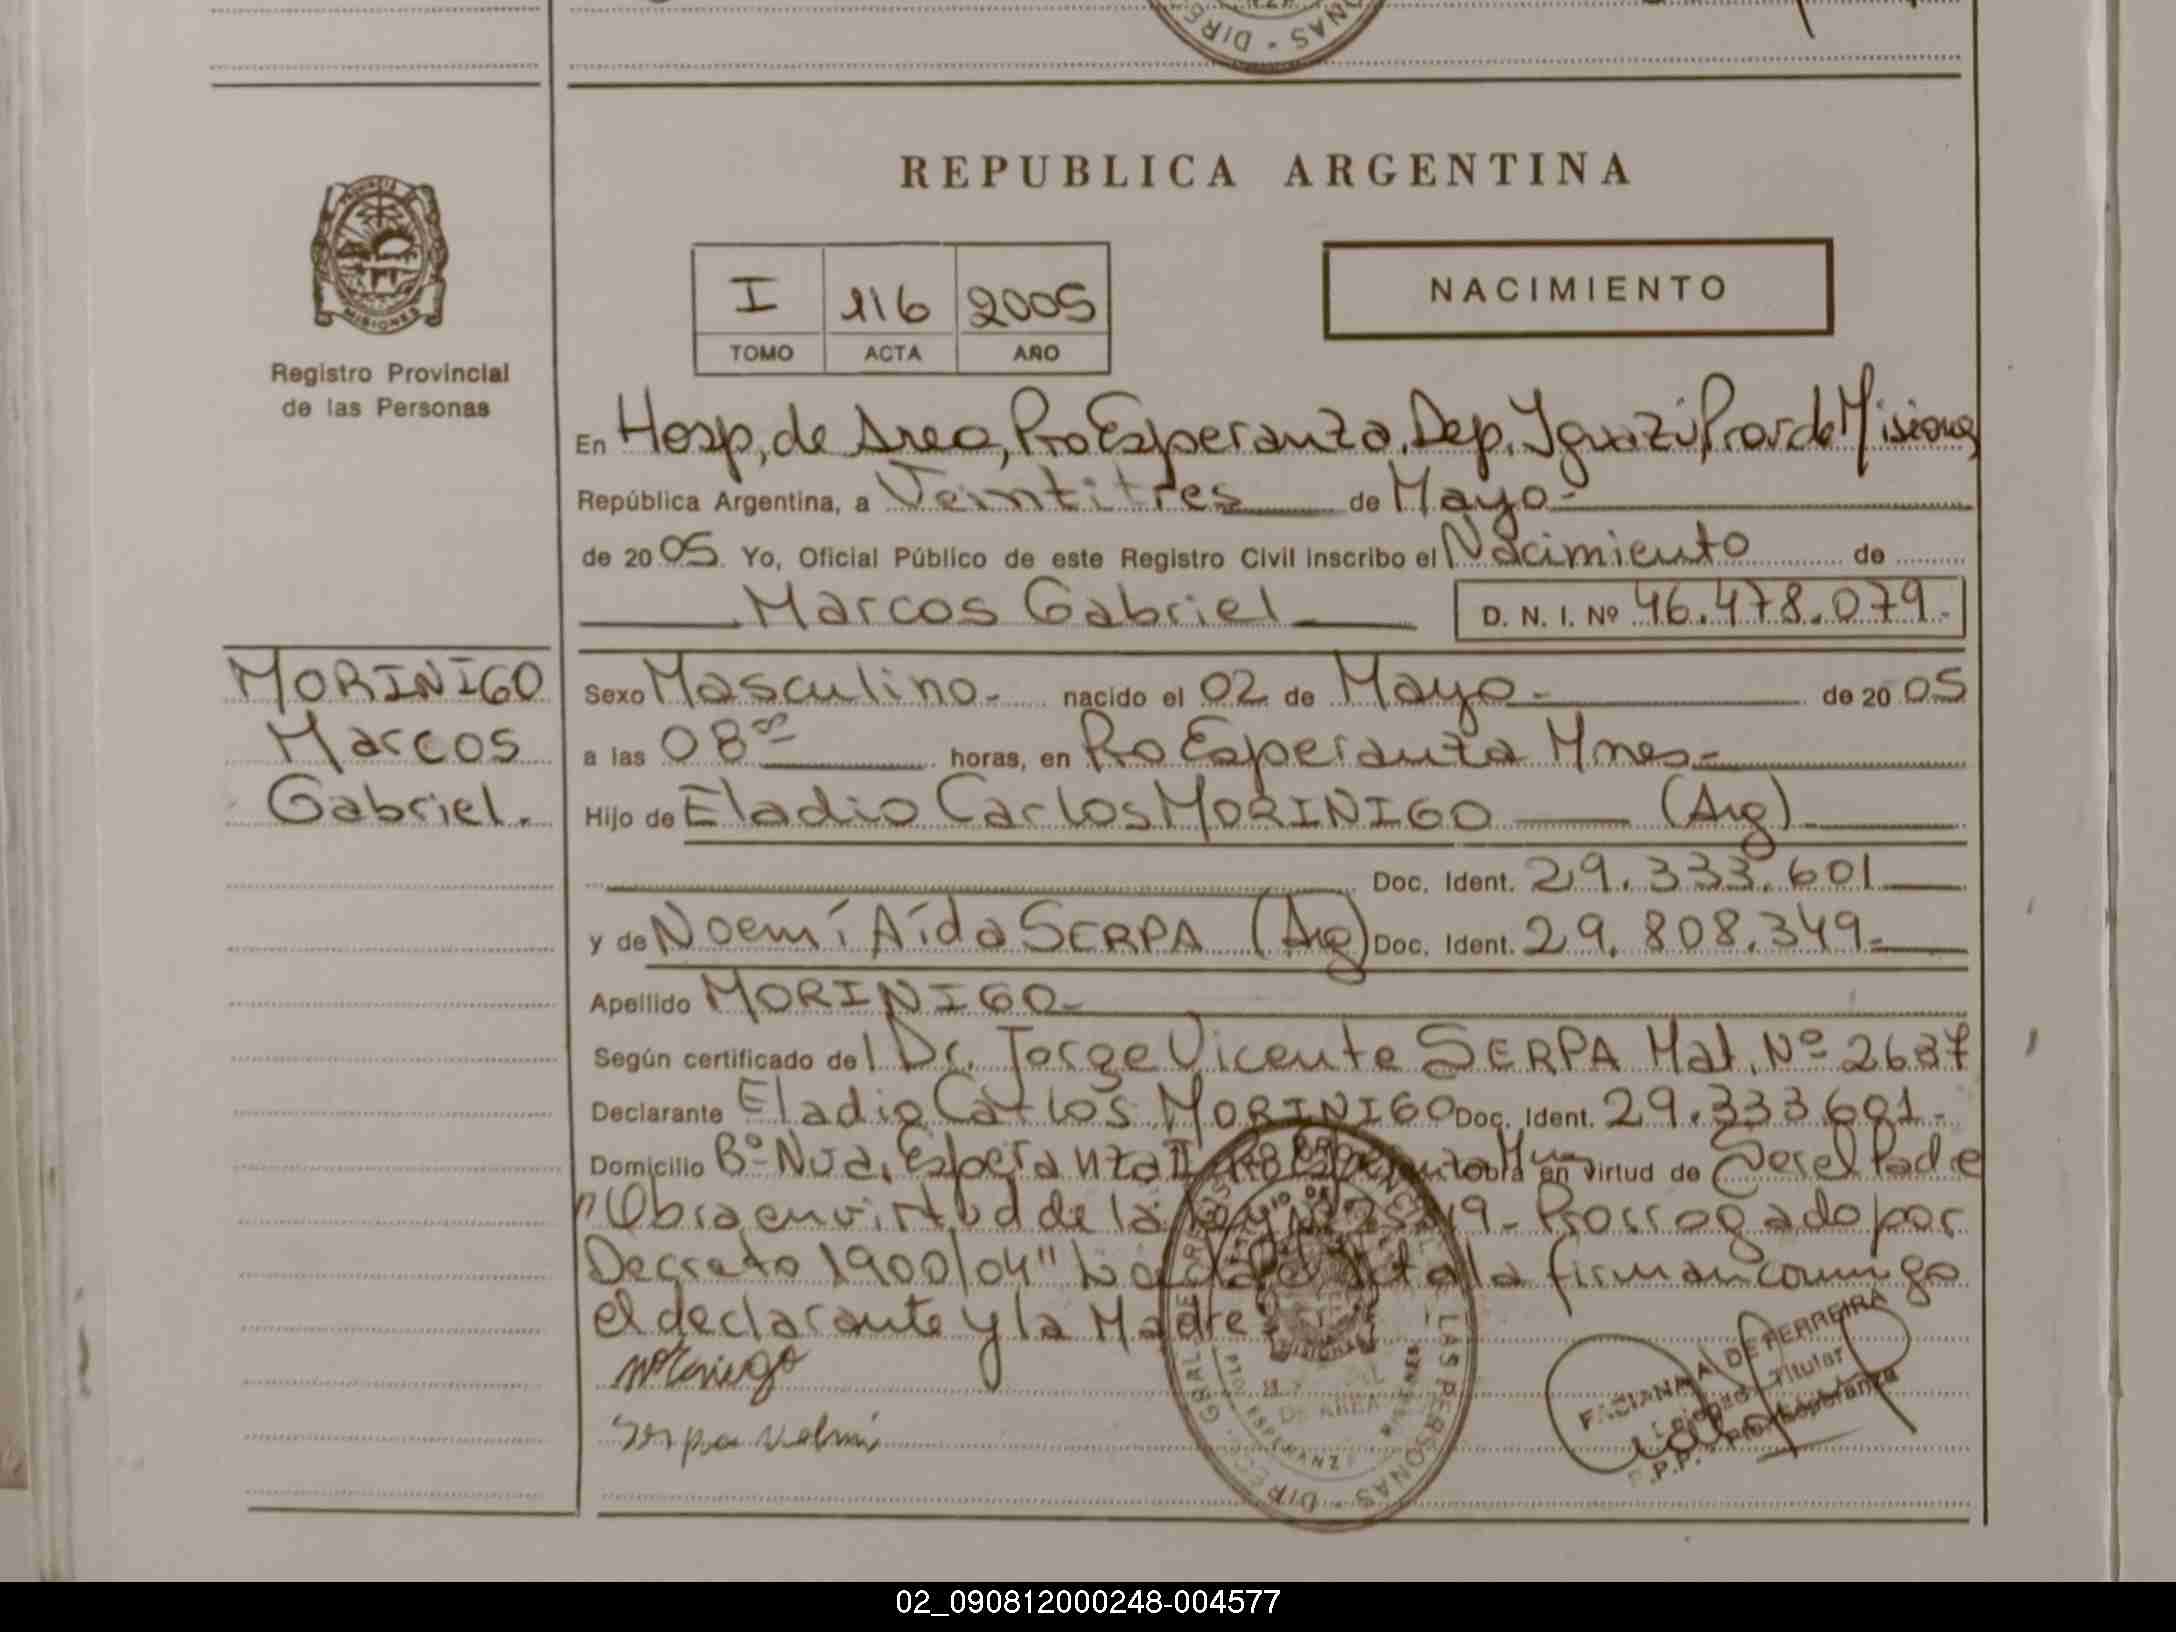 REPUBLICA ARGENTINA
I 116 2005
TOMO ACTA AÑO
NACIMIENTO
MISIONES
Registro Provincial
de las Personas
En Hosp, de Area, Pto Esperanza. Dep. Iguazú Prov de Misiones
República Argentina, a Veintitres de Mayo-
de 2005. Yo, Oficial Público de este Registro Civil inscribo el Nacimiento de
Marcos Gabriel
D. N. I. Nº 46.478.079.-
MORINIGO
Marcos
Gabriel.
Sexo Masculino.- nacido el 02 de Mayo.- de 2005
a las 08 horas, en Pto Esperanza Mnes.-
Hijo de Eladio Carlos MORINIGO (Arg)
Doc. Ident. 29.333.601
y de Noemí Aída SERPA (Arg) Doc. Ident. 29.808.349.-
Apellido MORINIGO-
Según certificado del Dr. Jorge Vicente SERPA Mat. Nº 2637
Declarante Eladio Carlos MORINIGO Doc. Ident. 29.333.601.-
Domicilio Bº Nva. Esperanza II obra en virtud de Ser el Padre
"Obra en virtud de la Prorrogado por
Decreto 1900/04" la firman conmigo
el declarante y la Madre
Morinigo
Serpa
FACIANA A DE FERREIRA
Titular
Pto. Esperanza
R.P.P.
02_090812000248-004577